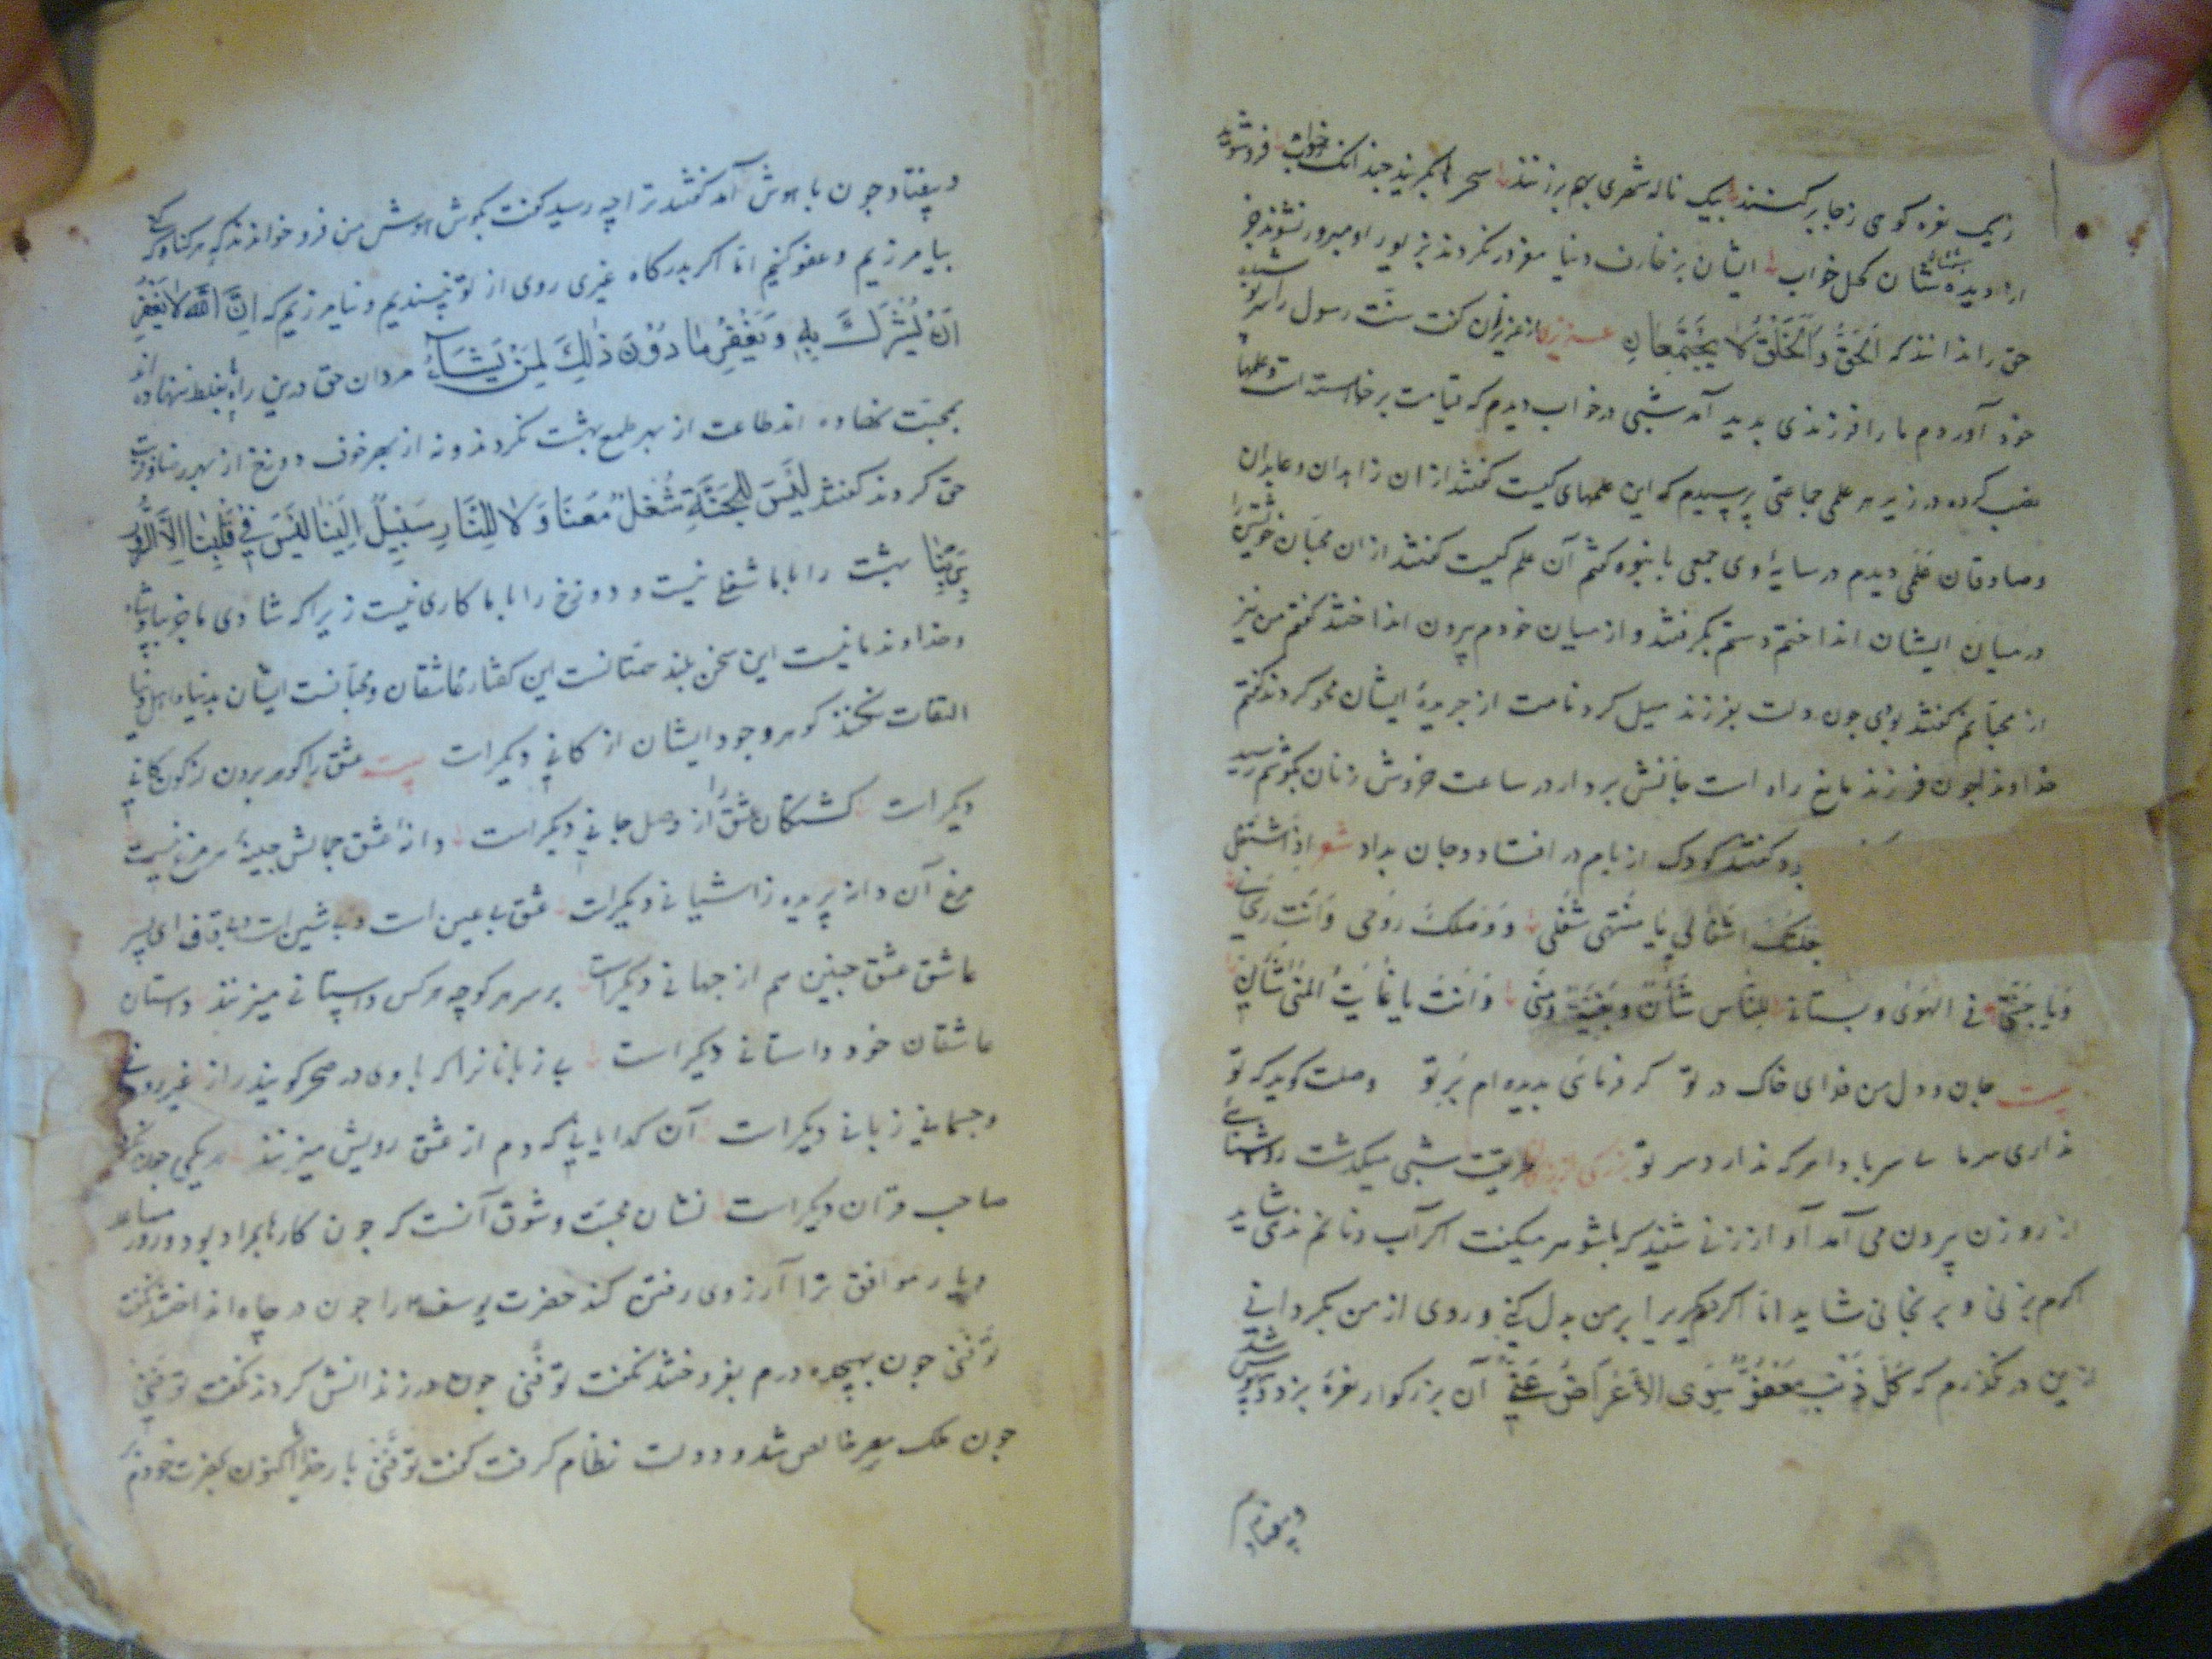 ز یک نعره کوهی ز جا برکنند بیک ناله شهری بهم برزنند سحرها بکریند جندانک خواب فروشوید
از دیده شان کحل خواب ایشان بزخارف دنیا مغرور نکردند بزیور او مسرور نشوند جز
حق را ندانند که الْحَقُّ وَالْخَلْقُ لا یَجْتَمِعَانِ عزیزی از عزیزان کفت سنت رسول را
خود آوردم ما را فرزندی بدید آمد شبی در خواب دیدم که قیامت برخاسته است و علمها
نصب کرده در زیر هر علمی جماعتی پرسیدم که این علمهای کیست کفتند از ان زاهدان و عابدان
و صادقان علمی دیدم در سایهٔ وی جمعی بانبوه کفتم آن علم کیست کفتند از ان محبان خویشتن را
در میان ایشان انداختم دستم بکرفتند و از میان خودم بیرون انداختند کفتم من نیز
از محبانم کفتند بودی جون دلت بفرزند میل کرد نامت از جریدهٔ ایشان محو کردند کفتم
خداوندا جون فرزند مانع راه است جانش بردار در ساعت خروش زنان بکوشم رسید
کفتند کودک از بام در افتاد و جان بداد شعر اذا اشتغل
اشغالی یا منتهی شغلی و وصلک روحی و انت ریحانی
و یا جنتی فی الهوی و بستانی للناس شأن و بغیة و منی و انت یا غایت المنی شأنی
بیت جان و دل من فدای خاک در تو کر فرمائی بدیده ام بر تو وصلت کوید که تو
نداری سر ما بی سر بادا هر که ندارد سر تو بزرکی از بزرکان طریقت شبی میکذشت روشنایی
از روزن بیرون می آمد آواز زنی شنید که با شوهر میکفت اکر آب و نانم ندهی شاید
اکرم بزنی و برنجانی شاید اما اکر دیکری را بر من بدل کنی و روی از من بکردانی
ازین در نکذرم که کل ذنب مغفور سوی الاعراض عنی آن بزرکوار نعرهٔ بزد و بیهوش شد
و بیفتاد
و بیفتاد جون با هوش آمد کفتند ترا چه رسید کفت بکوش هوش من فرو خواندند که هر کناه که کنی
بیامرزیم و عفو کنیم اما اکر بدرکاه غیری روی از تو نپسندیم و نیامرزیم که اِنَّ اللّهَ لا یَغْفِرُ
اَنْ یُشْرَكَ بِهِ وَیَغْفِرُ مَا دُوْنَ ذٰلِكَ لِمَنْ یَشَآءُ مردان حق درین راه بغلط ننهاده اند
بمحبت نهاده اند طاعت از بهر طمع بهشت نکردند و نه از بهر خوف دوزخ از بهر رضا و قربت
حق کردند کفتند لَیْسَ لِلْجَنَّةِ شُغْلٌ مَعَنَا وَلا لِلنَّارِ سَبِیلٌ اِلَیْنَا لَیْسَ فِي قَلْبِنَا اِلاَّ السُّرُورُ
بِرَبِّنَا بهشت را با ما شغلی نیست و دوزخ را با ما کاری نیست زیرا که شادی ما جز بپادشاه
و خداوند ما نیست این سخن بلند همتانست این کفتار عاشقان و محبانست ایشان بدنیا و اهل دنیا
التفات نکنند کوهر وجود ایشان از کانی دیکرات بیت عشق را کوهر برون از کون کانی
دیکرات کشتکان عشق را از وصل جانی دیکراست دانهٔ عشق جمالش جینهٔ هر مرغ نیست
مرغ آن دانه پریده ز اشیانی دیکرات عشق بی عین است و بی شین است و بی قاف ای پسر
عاشق عشق جنین هم از جهانی دیکرات بر سر هر کوچه هر کس داستانی میزنند داستان
عاشقان خود داستانی دیکراست بی زبانانرا که با وی در سحر کویند راز غیر روحانی
و جسمانی زبانی دیکرات آن کدایانی که دم از عشق رویش میزنند هر یکی جون
صاحب قران دیکراست نشان محبت و شوق آنست که جون کارها بمراد بود و روزکار مساعد
و یار موافق ترا آرزوی رفتن کند حضرت یوسف را جون در چاه انداختند نکفت
توفّنی جون بهیجده درم بفروختند نکفت توفّنی جون در زندانش کردند نکفت توفّنی
جون ملک مصر خالص شد و دولت نظام کرفت کفت توفّنی بار خدایا اکنون بحضرت خودم